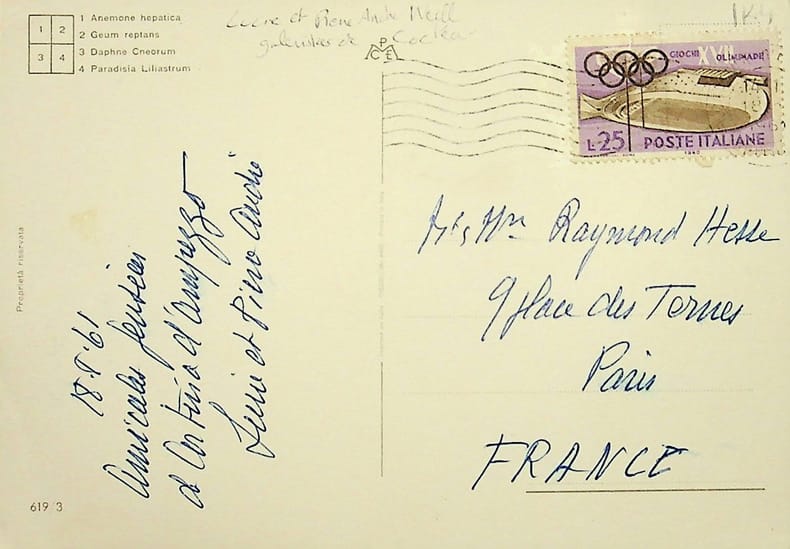 1 Anemone hepatica
2 Geum reptans
3 Daphne Cneorum
4 Paradisia Liliastrum
1 2
3 4
et Pierre André Weill
galeristes de Cocteau
PACE
GIOCHI XVII OLIMPIADE
L.25 POSTE ITALIANE
Proprietà riservata
18.8.61
Amicales pensées
de Cortina d'Ampezzo
et Pierre André
Mr & Mme Raymond Hesse
9 place des Ternes
Paris
FRANCE
619/3